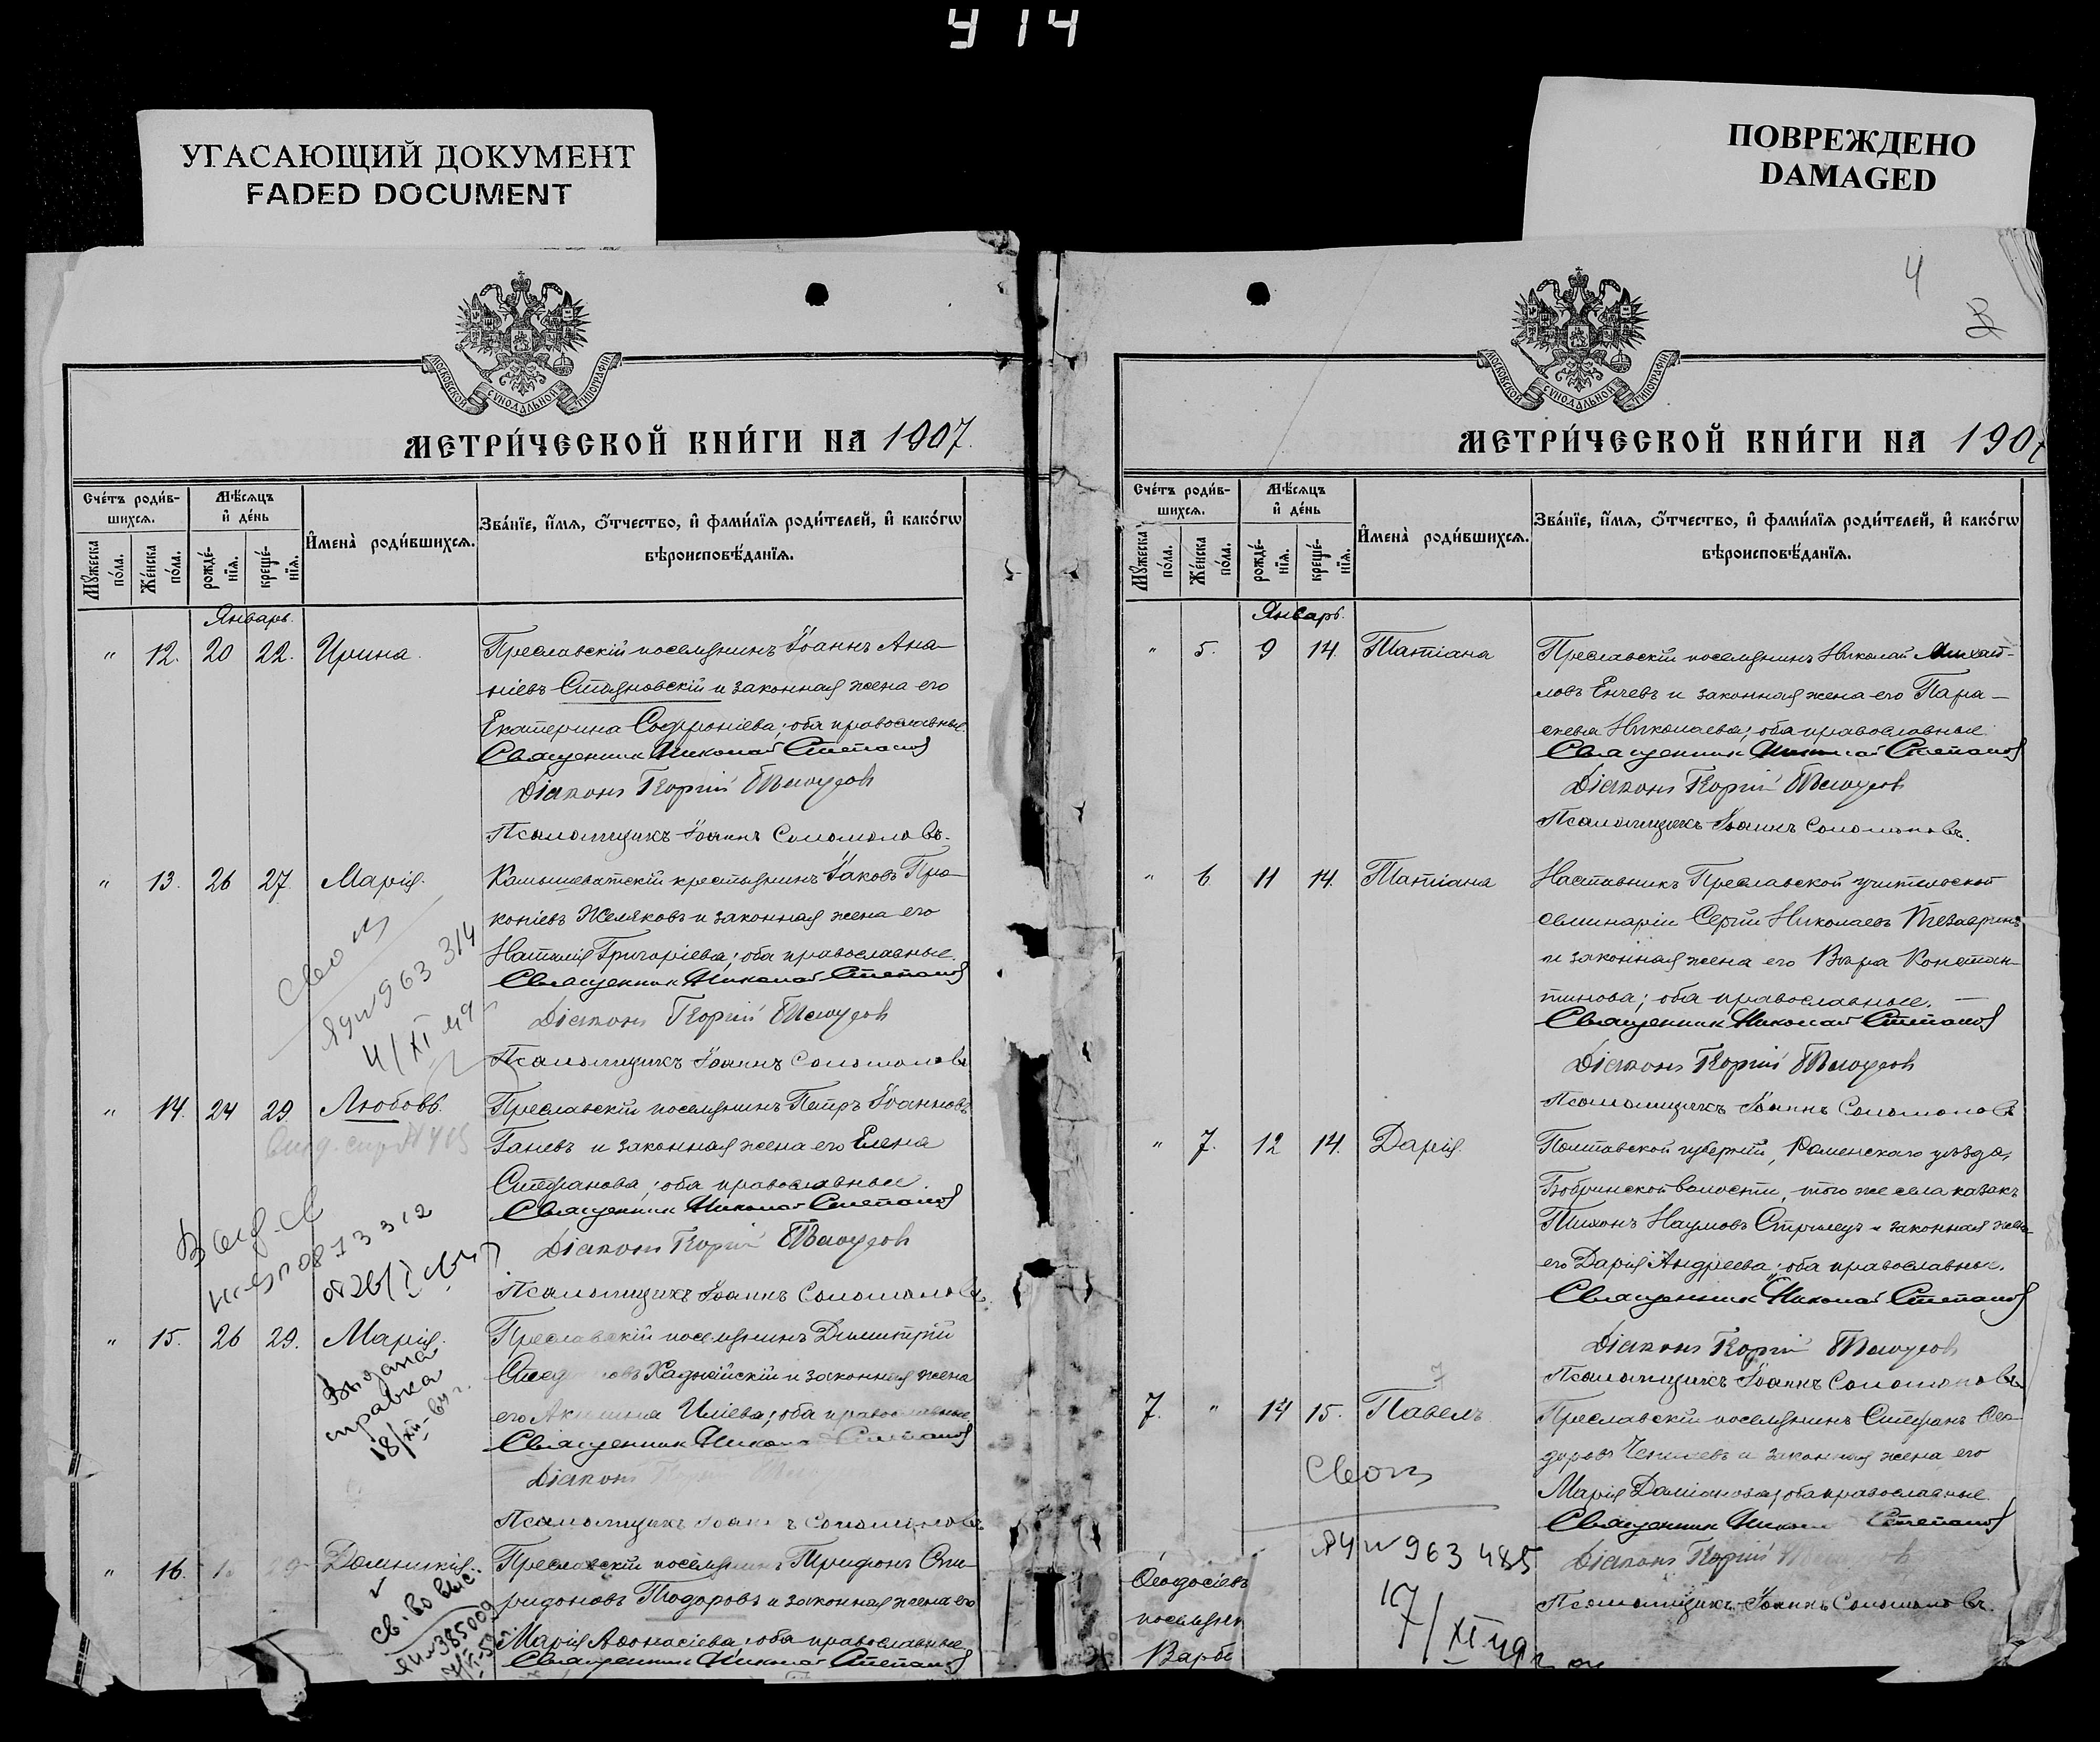 914
УГАСАЮЩИЙ ДОКУМЕНТ
FADED DOCUMENT
ПОВРЕЖДЕНО
DAMAGED
МОСКОВСКОЙ СѴНОДАЛЬНОЙ ТИПОГРАФІИ
МЕТРИ́ЧЕСКОЙ КНИ́ГИ НА 1907.
Сче́тъ роди́в-
шихся.
Мѣ́сяцъ
и҆ де́нь
И҆мена̀ роди́вшихся.
Зва́нїе, и҆́мя, ѻ҆́тчество, и҆ фами́лїя роди́телей, и҆ како́гѡ
вѣроисповѣ́данїя.
Мꙋ́жеска
по́ла.
Же́нска
по́ла.
рожде́-
нїя.
креще́-
нїя.
Январь.
" 12. 20 22. Ирина.
Преславскій поселянинъ Іоаннъ Ана-
ніевъ Стояновскій и законная жена его
Екатерина Софроніева; оба православные.
Священникъ Николай Степанов
Діаконъ Георгій
Псаломщикъ Іоаннъ Соломоновъ.
" 13. 26 27. Марія.
Камышеватскій крестьянинъ Іаковъ Про-
копіевъ Желяковъ и законная жена его
Наталія Григоріева; оба православные.
Священникъ Николай Степанов
Діаконъ Георгій
Псаломщикъ Іоаннъ Соломоновъ
963 314
4/XI 49
" 14. 24 29. Любовь.
Преславскій поселянинъ Петръ Іоанновъ
Ганевъ и законная жена его Елена
Стефанова; оба православные.
Священникъ Николай Степанов
Діаконъ Георгій
Псаломщикъ Іоаннъ Соломоновъ
" 15. 26 29. Марія.
Преславскій поселянинъ Димитрій
Хаджійскій и законная жена
его Иліева; оба православные.
Священникъ Николай Степанов
Діаконъ
Псаломщикъ Іоаннъ Соломоновъ
Выдана
справка
18/XII-
" 16. 29 Домникія.
Преславскій поселянинъ Трифонъ Спи-
ридоновъ Тодоровъ и законная жена его
Марія Аѳонасіева; оба православные.
Священникъ Николай Степанов
385009
4
3
МОСКОВСКОЙ СѴНОДАЛЬНОЙ ТИПОГРАФІИ
МЕТРИ́ЧЕСКОЙ КНИ́ГИ НА 1907
Сче́тъ роди́в-
шихся.
Мѣ́сяцъ
и҆ де́нь
И҆мена̀ роди́вшихся.
Зва́нїе, и҆́мя, ѻ҆́тчество, и҆ фами́лїя роди́телей, и҆ како́гѡ
вѣроисповѣ́данїя.
Мꙋ́жеска
по́ла.
Же́нска
по́ла.
рожде́-
нїя.
креще́-
нїя.
Январь.
" 5. 9 14. Татіана
Преславскій поселянинъ Николай Михай-
ловъ Енчевъ и законная жена его Пара-
скева Николаева; оба православные.
Священникъ Николай Степанов
Діаконъ Георгій
Псаломщикъ Іоаннъ Соломоновъ.
" 6 11 14. Татіана
Наставникъ Преславской учительской
семинаріи Сергій Николаевъ Тезавринъ
и законная жена его Вѣра Констан-
тинова; оба православные.
Священникъ Николай Степанов
Діаконъ Георгій
Псаломщикъ Іоаннъ Соломоновъ
" 7. 12 14. Дарія.
Полтавской губерніи, Роменскаго уѣзда,
Бобринской волости, того же села казакъ
Тихонъ Наумовъ Стрилецъ и законная жена
его Дарія Андреева; оба православные.
Священникъ Николай Степанов
Діаконъ Георгій
Псаломщикъ Іоаннъ Соломоновъ
7
7. " 14 15. Павелъ.
Преславскій поселянинъ Стефанъ Ѳео-
доровъ и законная жена его
Марія Даміанова; оба православные.
Священникъ Степанов
Діаконъ Георгій
Псаломщикъ Іоаннъ Соломоновъ.
963 485
17/XI 49
Ѳеодосіевъ
поселянин
Варва